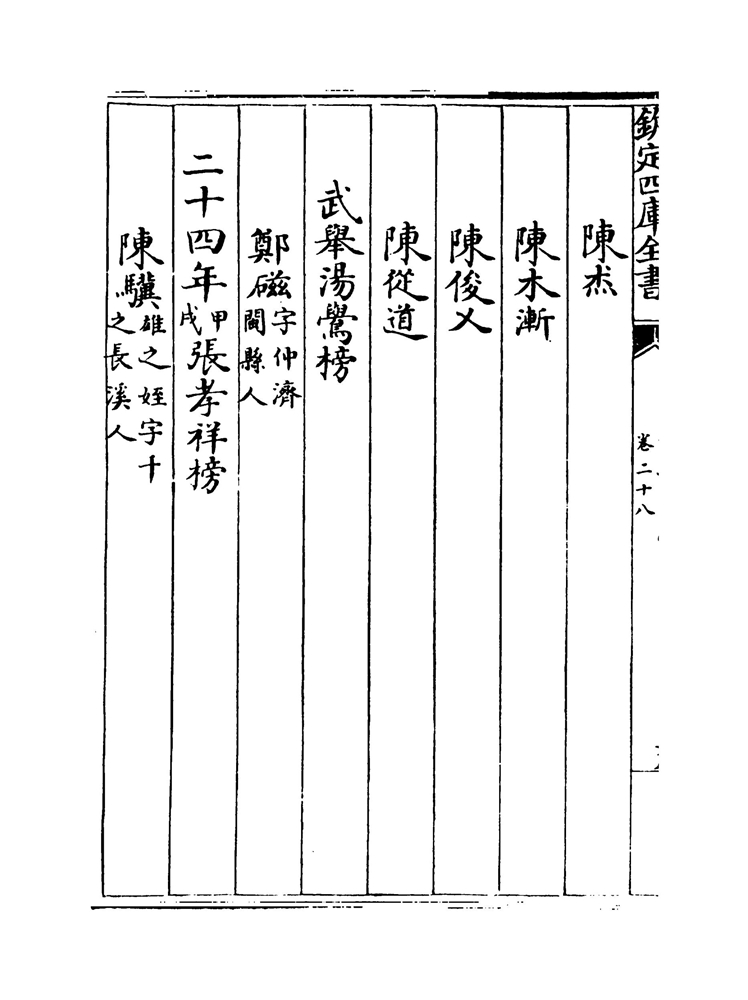 欽定四庫全書
卷二十八
陳杰
陳木漸
陳俊乂
陳從道
武舉湯鷽榜
鄭磁字仲濟
閩縣人
二十四年甲
戌張孝祥榜
陳驥雄之姪字十
之長溪人